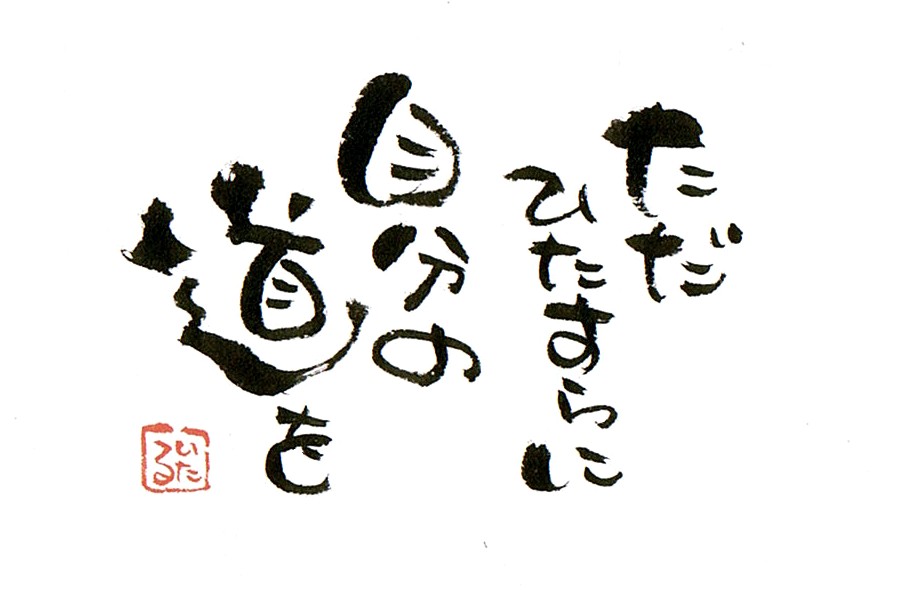 ただ
ひたすらに
自分の
道を
ひたる